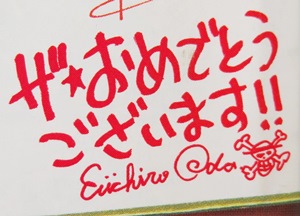 ザ★おめでとう
ございます!!
Eiichiro Oda